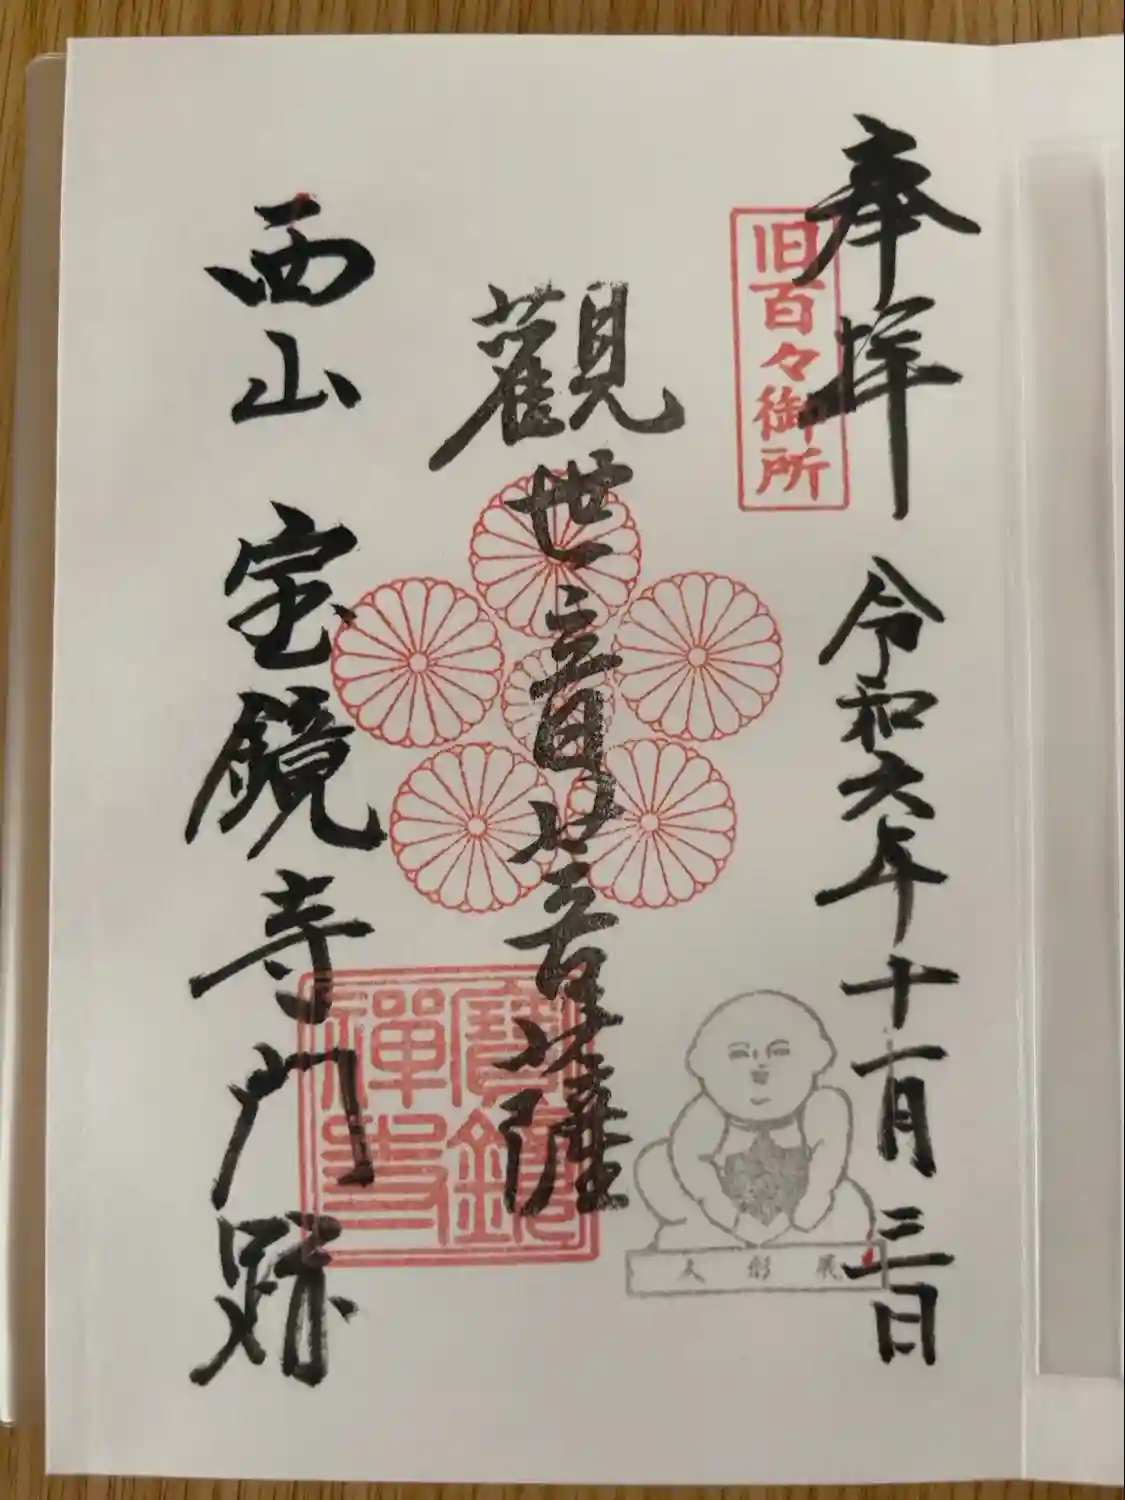 奉拝
令和六年十一月三日
旧百々御所
觀世音菩薩
西山 宝鏡寺門跡
寶鏡禅寺
人形展